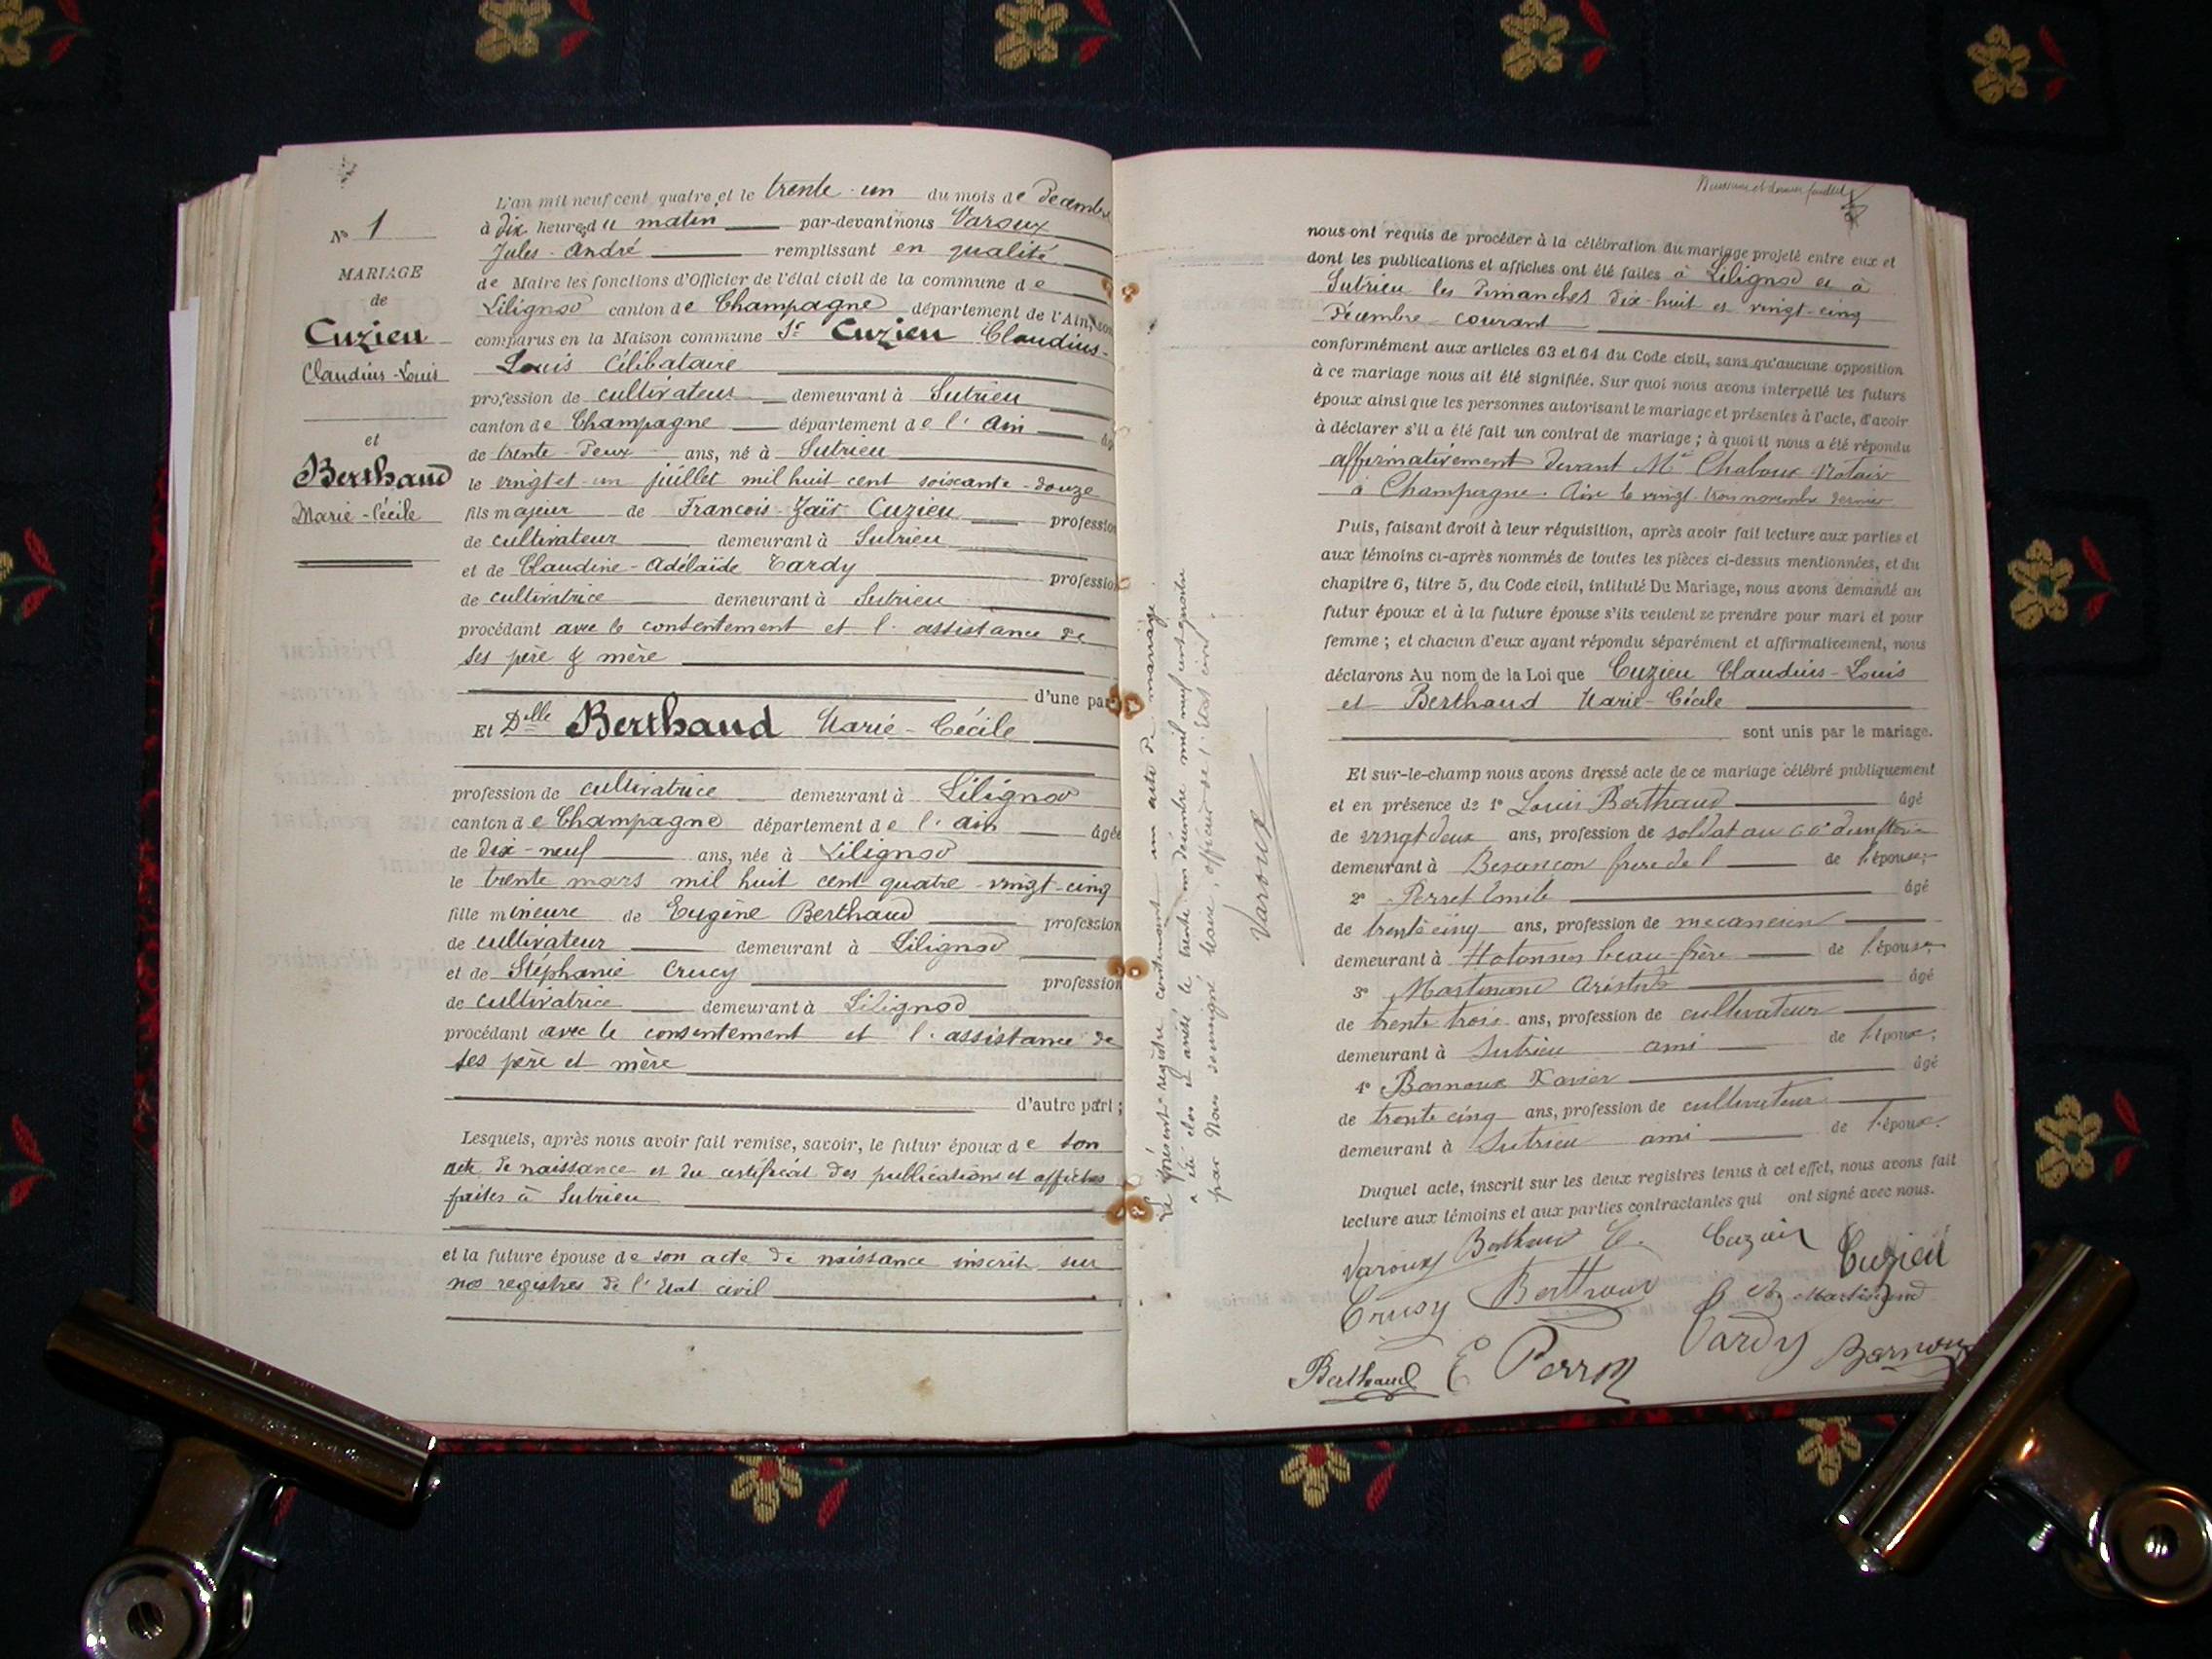 N° 1
MARIAGE
de
Cuzieu
Claudius-Louis
et
Berthaud
Marie-Cécile
L'an mil neuf cent quatre et le trente-un du mois de Décembre
à dix heures du matin par-devant nous Varoux
Jules-André remplissant en qualité
de Maire les fonctions d'Officier de l'état civil de la commune de
Lilignod canton de Champagne département de l'Ain, sont
comparus en la Maison commune Sr Cuzieu Claudius-
Louis Célibataire
profession de cultivateur demeurant à Sutrieu
canton de Champagne département de l'Ain âgé
de trente-Deux ans, né à Sutrieu
le vingt et un juillet mil huit cent soixante-douze
fils majeur de François-Zaïr Cuzieu profession
de cultivateur demeurant à Sutrieu
et de Claudine-Adélaïde Tardy profession
de cultivatrice demeurant à Sutrieu
procédant avec le consentement et l'assistance de
ses père & mère
d'une part
Et Delle Berthaud Marie-Cécile
profession de cultivatrice demeurant à Lilignod
canton de Champagne département de l'Ain âgée
de dix-neuf ans, née à Lilignod
le trente mars mil huit cent quatre-vingt-cinq
fille mineure de Eugène Berthaud profession
de cultivateur demeurant à Lilignod
et de Stéphanie Crucy profession
de cultivatrice demeurant à Lilignod
procédant avec le consentement et l'assistance de
ses père et mère
d'autre part ;
Lesquels, après nous avoir fait remise, savoir, le futur époux de son
acte de naissance et du certificat des publications et affiches
faites à Sutrieu
et la future épouse de son acte de naissance inscrit sur
nos registres de l'Etat civil
Le présent registre contenant un acte de mariage
a été clos et arrêté le trente-un décembre mil neuf cent quatre
par Nous soussigné, Maire, officier de l'Etat civil.
Varoux
nous ont requis de procéder à la célébration du mariage projeté entre eux et
dont les publications et affiches ont été faites à Lilignod et à
Sutrieu les Dimanches dix-huit et vingt-cinq
Décembre courant
conformément aux articles 63 et 64 du Code civil, sans qu'aucune opposition
à ce mariage nous ait été signifiée. Sur quoi nous avons interpellé les futurs
époux ainsi que les personnes autorisant le mariage et présentes à l'acte, d'avoir
à déclarer s'il a été fait un contrat de mariage ; à quoi il nous a été répondu
affirmativement devant Me Notaire
à Champagne. Ain le vingt-trois novembre dernier
Puis, faisant droit à leur réquisition, après avoir fait lecture aux parties et
aux témoins ci-après nommés de toutes les pièces ci-dessus mentionnées, et du
chapitre 6, titre 5, du Code civil, intitulé Du Mariage, nous avons demandé au
futur époux et à la future épouse s'ils veulent se prendre pour mari et pour
femme ; et chacun d'eux ayant répondu séparément et affirmativement, nous
déclarons Au nom de la Loi que Cuzieu Claudius-Louis
et Berthaud Marie-Cécile
sont unis par le mariage.
Et sur-le-champ nous avons dressé acte de ce mariage célébré publiquement
et en présence de 1° Louis Berthaud âgé
de vingt deux ans, profession de soldat au 60e
demeurant à Besançon frère de l de l'épouse;
2° Perret Emile âgé
de trente cinq ans, profession de mecancien
demeurant à Hotonnes beau-frère de l'épouse;
3° Martinand Aristide âgé
de trente trois ans, profession de cultivateur
demeurant à Sutrieu ami de l'époux;
4° Bornoux Xavier âgé
de trente cinq ans, profession de cultivateur
demeurant à Sutrieu ami de l'époux.
Duquel acte, inscrit sur les deux registres tenus à cet effet, nous avons fait
lecture aux témoins et aux parties contractantes qui ont signé avec nous.
Varoux Berthaud C. Cuzieu Cuzieu
Crucy Berthaud Martinand
Berthaud E Tardy